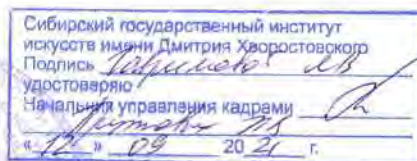 Сибирский государственный институт
искусств имени Дмитрия Хворостовского
Подпись Гаврилова АВ
удостоверяю
Начальник управления кадрами
« 12 » 09 20 21 г.